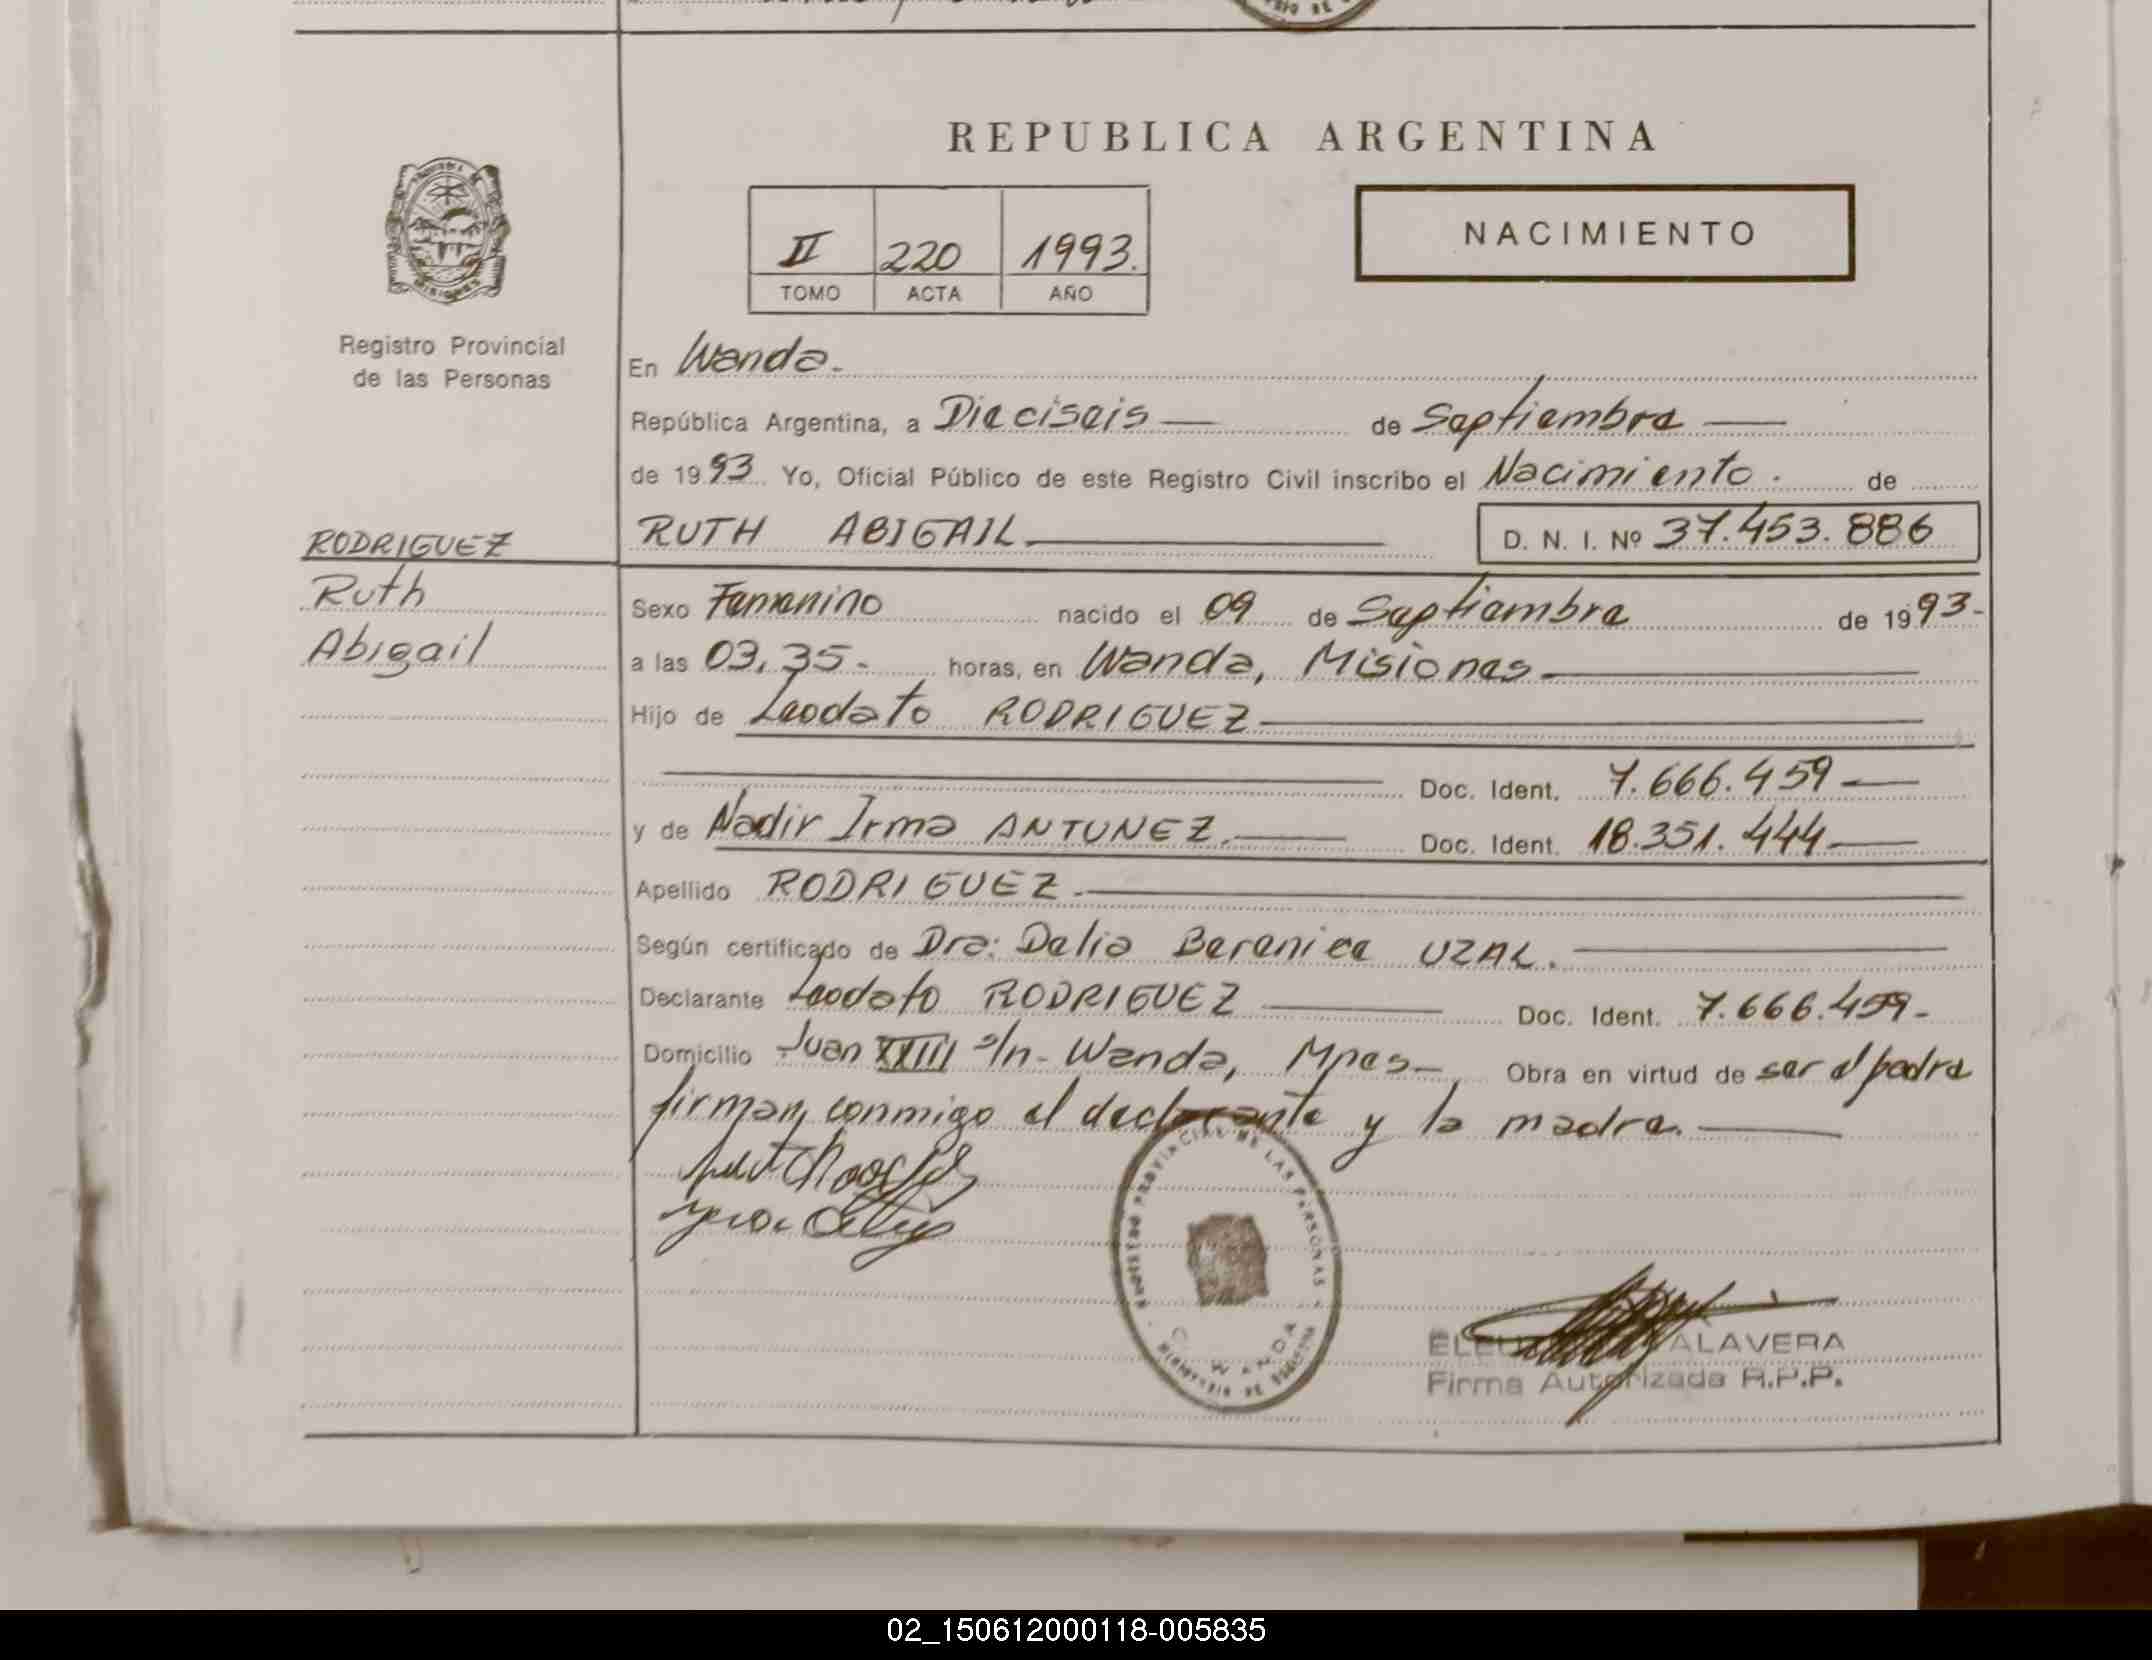 REPUBLICA ARGENTINA
NACIMIENTO
II 220 1993.
TOMO ACTA AÑO
Registro Provincial
de las Personas
En Wanda.
República Argentina, a Dieciseis de Septiembre
de 1993 Yo, Oficial Público de este Registro Civil inscribo el Nacimiento. de
RUTH ABIGAIL D. N. I. Nº 37.453.886
RODRIGUEZ
Ruth
Abigail
Sexo Femenino nacido el 09 de Septiembre de 1993-
a las 03,35.- horas, en Wanda, Misiones
Hijo de Leodato RODRIGUEZ
Doc. Ident. 7.666.459
y de Nadir Irma ANTUNEZ. Doc. Ident. 18.351.444
Apellido RODRIGUEZ.
Según certificado de Dra: Delia Berenice UZAL.
Declarante Leodato RODRIGUEZ Doc. Ident. 7.666.459.-
Domicilio Juan XXIII s/n- Wanda, Mnes- Obra en virtud de ser el padre
firman, conmigo el declarante y la madre.
REGISTRO PROVINCIAL DE LAS PERSONAS
WANDA
ALAVERA
Firma Autorizada R.P.P.
02_150612000118-005835